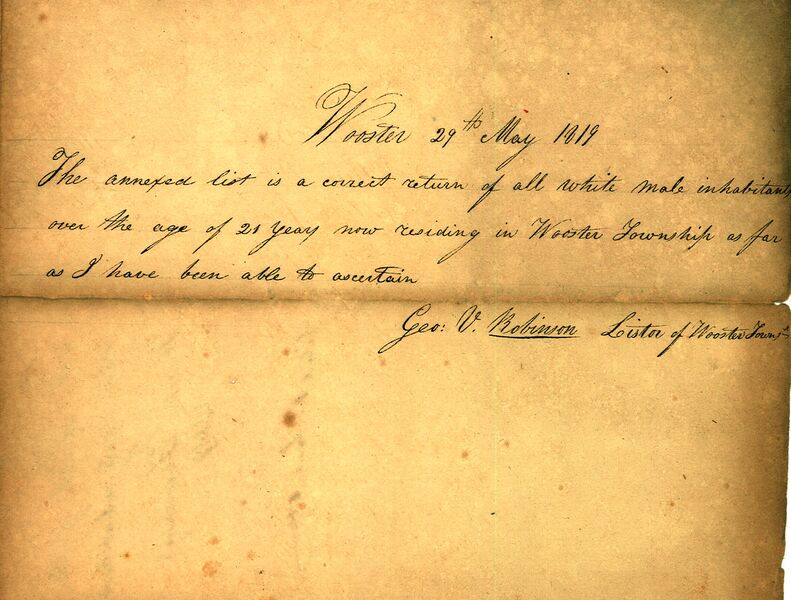 Wooster 29th May 1819
The annexed list is a correct return of all white male inhabitants
over the age of 21 years now residing in Wooster Township as far
as I have been able to ascertain
Geo: V. Robinson Listor of Wooster Townsp